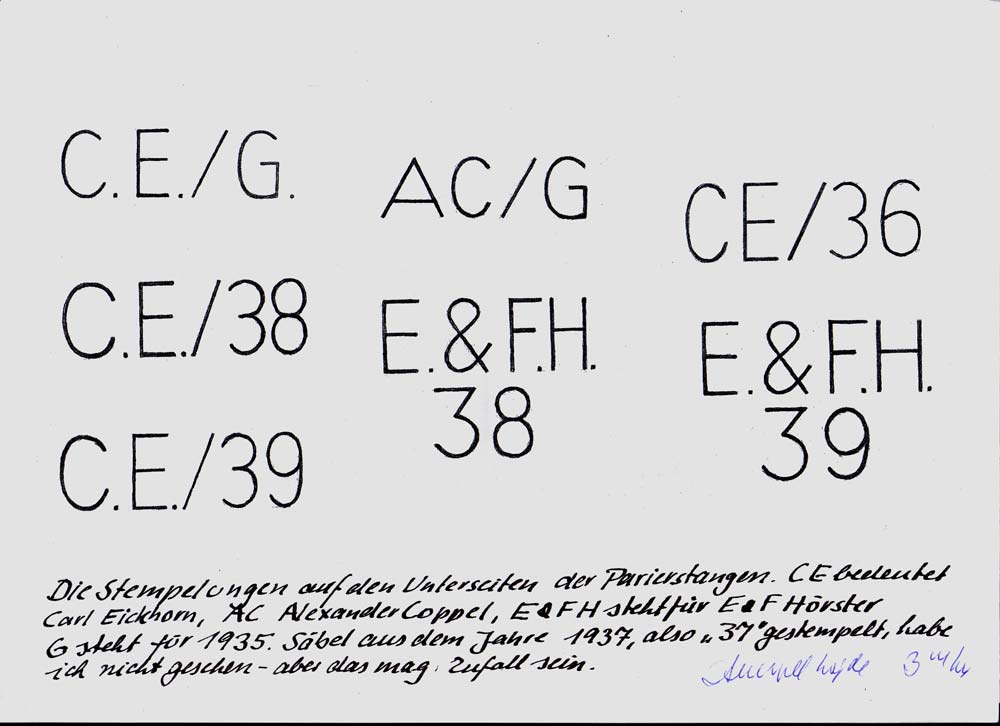 C.E./G.
AC/G
CE/36
C.E./38
E.&F.H.
38
E.&F.H.
39
C.E./39
Die Stempelungen auf den Unterseiten der Parierstangen. CE bedeutet
Carl Eickhorn, AC Alexander Coppel, E&FH steht für E&F Hörster
G steht für 1935. Säbel aus dem Jahre 1937, also „37" gestempelt, habe
ich nicht gesehen - aber das mag Zufall sein.